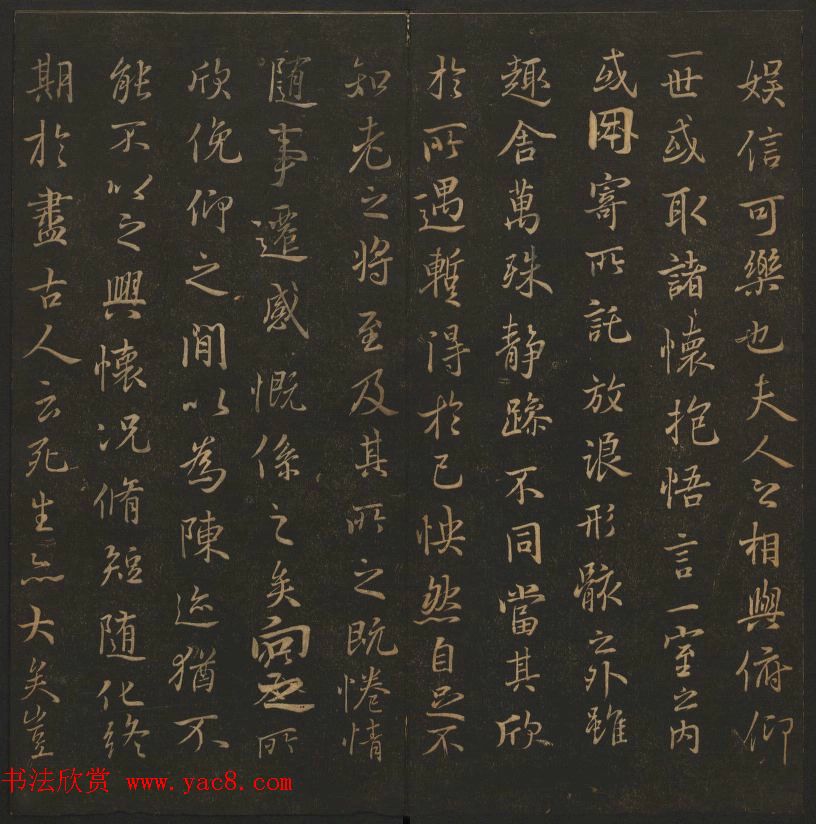 娱信可樂也夫人之相與俯仰
一世或取諸懷抱悟言一室之内
或因寄所託放浪形骸之外雖
趣舍萬殊静躁不同當其欣
於所遇暫得於己怏然自足不
知老之將至及其所之既惓情
隨事遷感慨係之矣向之所
欣俛仰之間以為陳迹猶不
能不以之興懷况脩短随化終
期於盡古人云死生亦大矣豈
书法欣赏 www.yac8.com